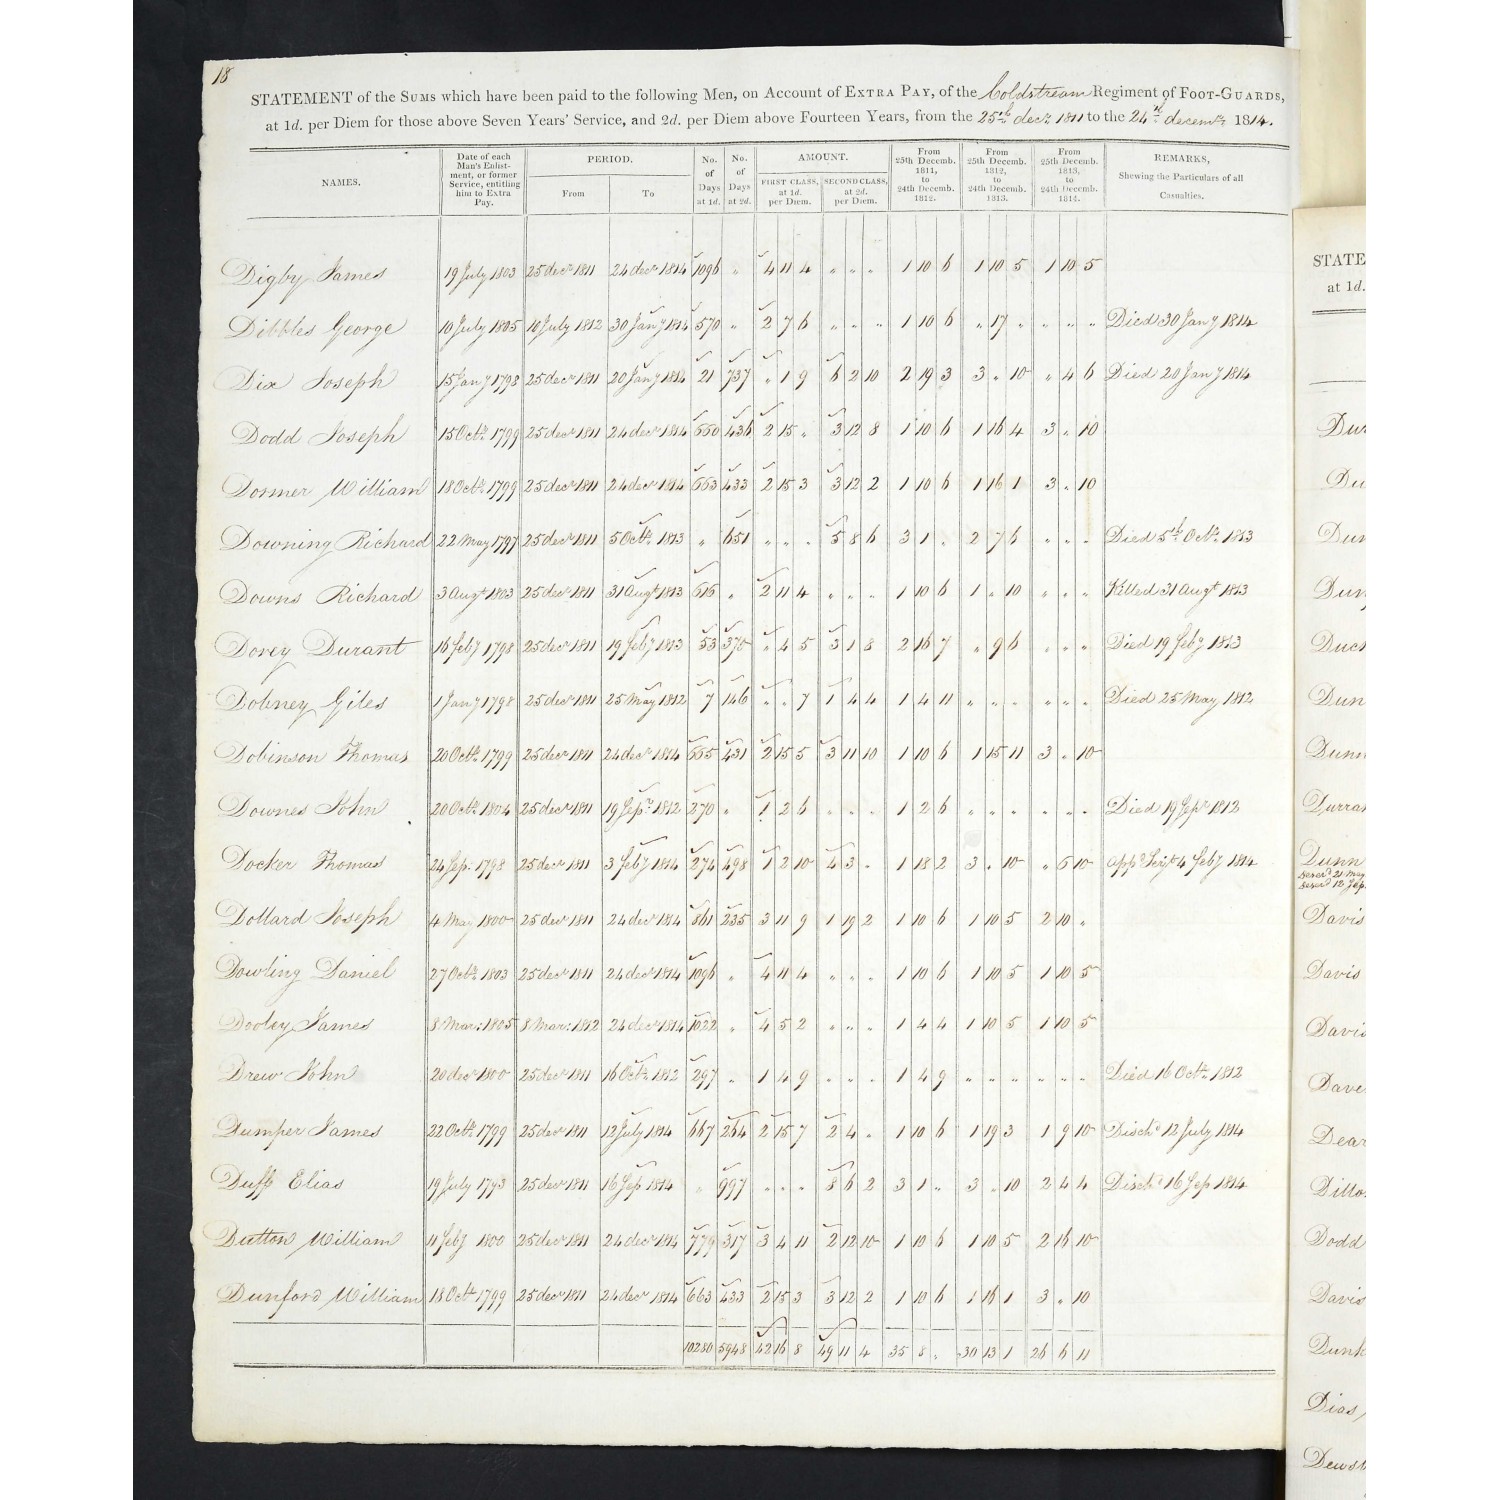 18
STATEMENT of the SUMS which have been paid to the following Men, on Account of EXTRA PAY, of the Coldstream Regiment of FOOT-GUARDS,
at 1d. per Diem for those above Seven Years' Service, and 2d. per Diem above Fourteen Years, from the 25th decr 1811 to the 24th decemr 1814.
NAMES. Date of each Man's Enlistment, or former Service, entitling him to Extra Pay. PERIOD. From To No. of Days at 1d. No. of Days at 2d. AMOUNT. FIRST CLASS, at 1d. per Diem. SECOND CLASS, at 2d. per Diem. From 25th Decemb. 1811, to 24th Decemb. 1812. From 25th Decemb. 1812, to 24th Decemb. 1813. From 25th Decemb. 1813, to 24th Decemb. 1814. REMARKS, Shewing the Particulars of all Casualties.
Digby James 19 July 1803 25 decr 1811 24 decr 1814 1096 " 4 11 4 " " " 1 10 6 1 10 5 1 10 5
Dibbles George 10 July 1805 10 July 1812 30 Jany 1814 570 " 2 7 6 " " " 1 10 6 " 17 " " " " Died 30 Jany 1814
Dix Joseph 15 Jany 1798 25 decr 1811 20 Jany 1814 21 737 " 1 9 6 2 10 2 19 3 3 " 10 " 4 6 Died 20 Jany 1814
Dodd Joseph 15 Octr 1799 25 decr 1811 24 decr 1814 660 436 2 15 " 3 12 8 1 10 6 1 16 4 3 " 10
Dormer William 18 Octr 1799 25 decr 1811 24 decr 1814 663 433 2 15 3 3 12 2 1 10 6 1 16 1 3 " 10
Downing Richard 22 May 1797 25 decr 1811 5 Octr 1813 " 651 " " " 5 8 6 3 1 " 2 7 6 " " " Died 5th Octr 1813
Downs Richard 3 Augt 1803 25 decr 1811 31 Augt 1813 616 " 2 11 4 " " " 1 10 6 1 " 10 " " " Killed 31 Augt 1813
Dorey Durant 16 Feby 1798 25 decr 1811 19 Feby 1813 53 370 " 4 5 3 1 8 2 16 7 " 9 6 " " " Died 19 Feby 1813
Dobney Giles 1 Jany 1798 25 decr 1811 25 May 1812 7 146 " " 7 1 4 4 1 4 11 " " " " " " Died 25 May 1812
Dobinson Thomas 20 Octr 1799 25 decr 1811 24 decr 1814 665 431 2 15 5 3 11 10 1 10 6 1 15 11 3 " 10
Downes John 20 Octr 1804 25 decr 1811 19 Sepr 1812 270 " 1 2 6 " " " 1 2 6 " " " " " " Died 19 Sepr 1812
Docker Thomas 24 Sep: 1798 25 decr 1811 3 Feby 1814 274 498 1 2 10 4 3 " 1 18 2 3 " 10 " 6 10 appd Serjt 4 Feby 1814
Dollard Joseph 4 May 1800 25 decr 1811 24 decr 1814 861 235 3 11 9 1 19 2 1 10 6 1 10 5 2 10 "
Dowling Daniel 27 Octr 1803 25 decr 1811 24 decr 1814 1096 " 4 11 4 " " " 1 10 6 1 10 5 1 10 5
Dooley James 8 Mar: 1805 8 Mar: 1812 24 decr 1814 1022 " 4 5 2 " " " 1 4 4 1 10 5 1 10 5
Drew John 20 decr 1800 25 decr 1811 16 Octr 1812 297 " 1 4 9 " " " 1 4 9 " " " " " " Died 16 Octr 1812
Dumper James 22 Octr 1799 25 decr 1811 12 July 1814 667 264 2 15 7 2 4 " 1 10 6 1 19 3 1 9 10 Dischd 12 July 1814
Duff Elias 19 July 1793 25 decr 1811 16 Sep 1814 " 997 " " " 8 6 2 3 1 " 3 " 10 2 4 4 Dischd 16 Sep 1814
Dutton William 11 Feby 1800 25 decr 1811 24 decr 1814 779 317 3 4 11 2 12 10 1 10 6 1 10 5 2 16 10
Dunford William 18 Octr 1799 25 decr 1811 24 decr 1814 663 433 2 15 3 3 12 2 1 10 6 1 16 1 3 " 10
10280 5948 42 16 8 49 11 4 35 8 " 30 13 1 26 6 11
STATE
at 1d.
Dunn
Deserd 21 May
Deserd 12 Sep.
Davis
Davis
Dodd
Davis